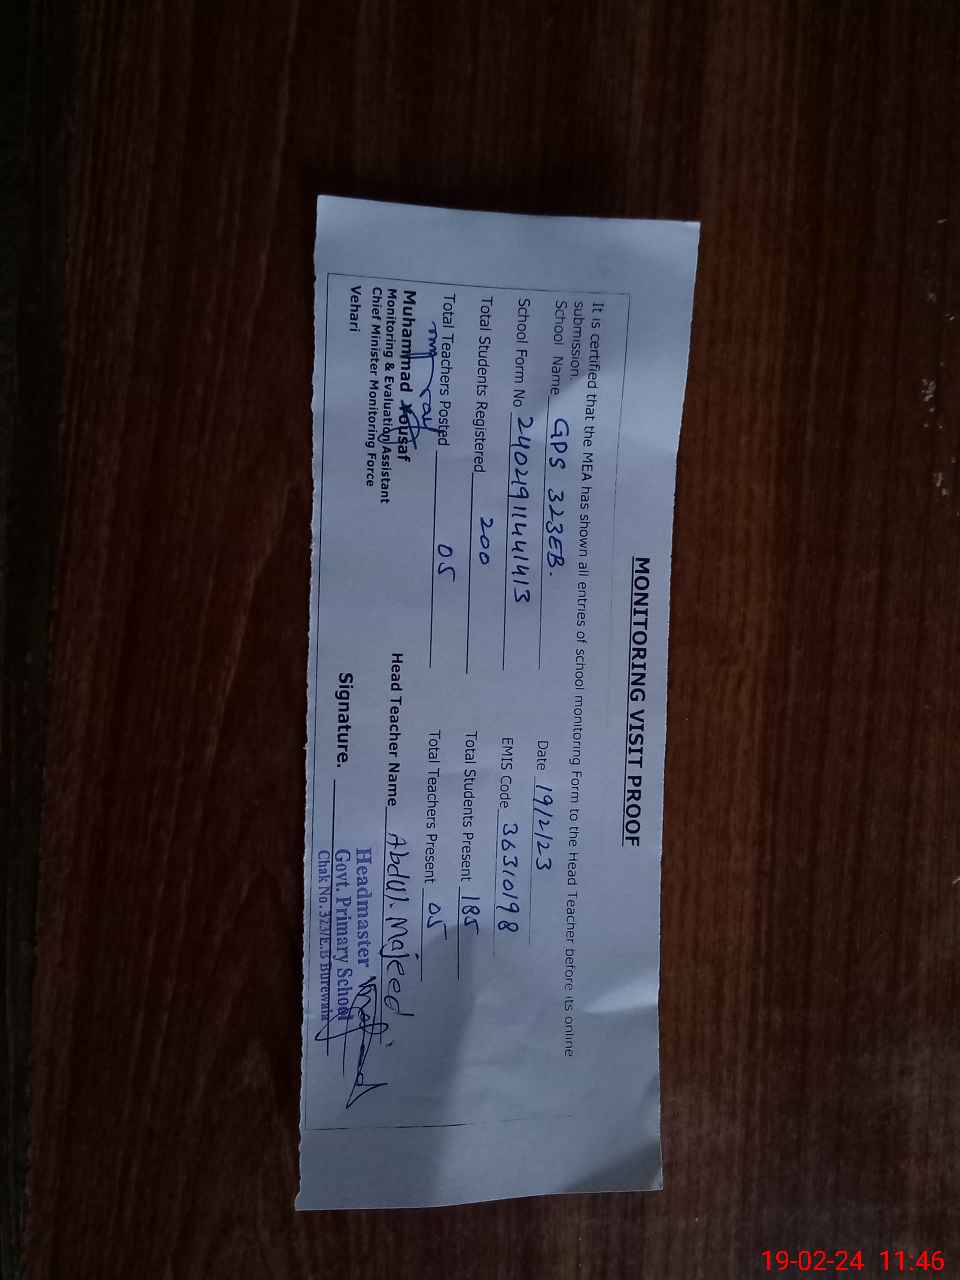 MONITORING VISIT PROOF
It is certified that the MEA has shown all entries of school monitoring Form to the Head Teacher before its online
submission.
School Name GPS 323EB. Date 19/2/23
School Form No 240219114441413 EMIS Code 36310198
Total Students Registered 200 Total Students Present 185
Total Teachers Posted 05 Total Teachers Present 05
Muhammad Yousaf Head Teacher Name Abdul. Majeed
Monitoring & Evaluation Assistant
Chief Minister Monitoring Force
Vehari
Signature.
Headmaster
Govt. Primary School
Chak No. 323/E.B Burewala
19-02-24 11:46